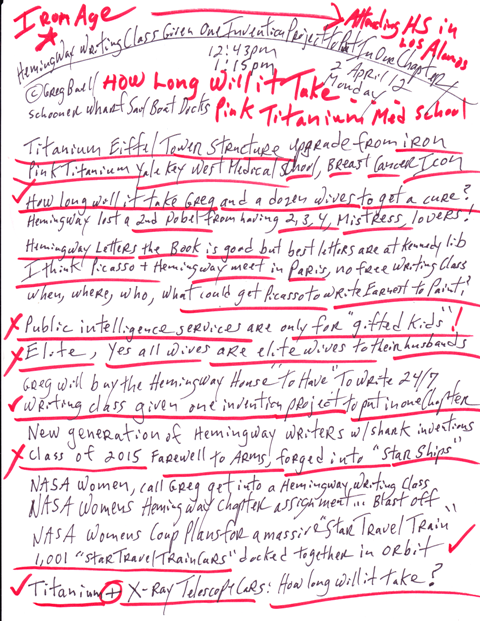 Iron Age
Attending HS in
Los Alamos
HemingWay Writing Class Given One Invention Project to Put In One Chapter
12:43pm
1:15pm
2 April 12
Monday
©Greg Buell
How Long Will it Take
Schooner Wharf Sail Boat Docks
Pink Titanium Med School
Titanium Eiffel Tower Structure upgrade from iron
Pink Titanium Yale Key West Medical School, Breast Cancer Icon
How long will it take Greg and a dozen wives to get a cure?
Hemingway lost a 2nd Nobel from having 2,3,4, Mistress, lovers!
Hemingway Letters the Book is good but best letters are at Kennedy lib
I think Picasso + Hemingway meet in Paris, no free writing class
when, where, who, what could get Picasso to write Earnest to Paint?
Public intelligence service are only for "gifted Kids"!
Elite, yes all wives are elite wives to their husbands
Greg will buy the Hemingway House "To Have" To Write 24/7
Writing class given one invention project to put in one Chapter
New generation of Hemingway writers w/shank inventions
Class of 2015 Farewell to Arms, forged into "Star Ships"
NASA Women, call Greg get into a Hemingway Writing Class
NASA Womens Hemingway Chapter assignment... Blast off
NASA Womens Coup Plans for a massive "Star Travel Train"
1,001 "Star Travel Train Cars" docked together in orbit
Titanium + X-Ray Telescope Cars: How long will it take?